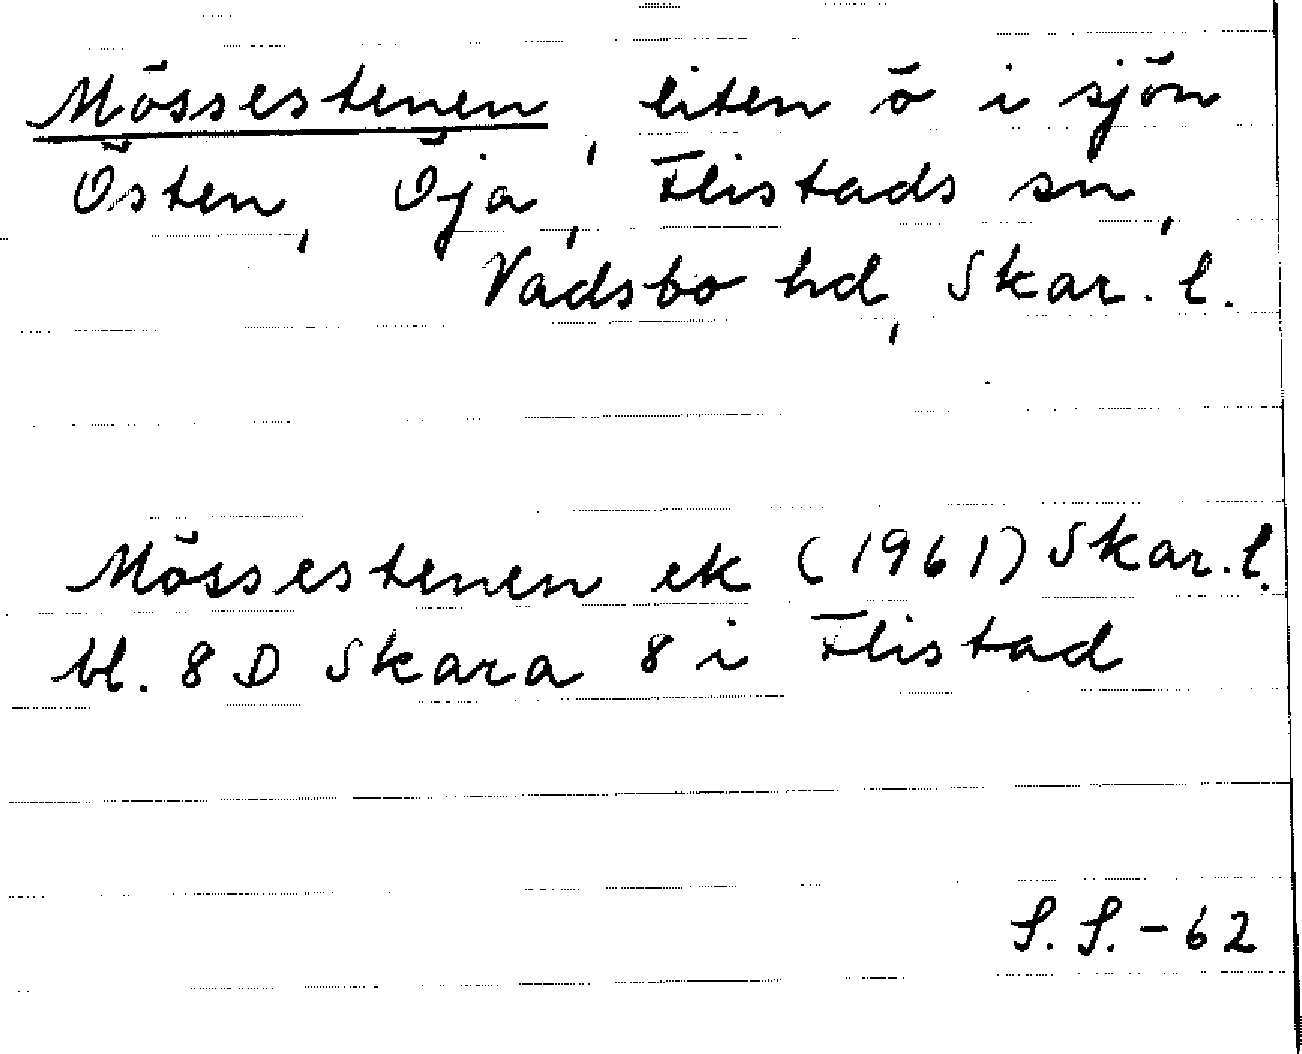 Mössestenen, liten ö i sjön
Östen, Öja, Flistads sn,
Vadsbo hd, Skar. l.
Mössestenen ek (1961) Skar. l.
bl. 8 D Skara 8 i Flistad
S. S. - 62